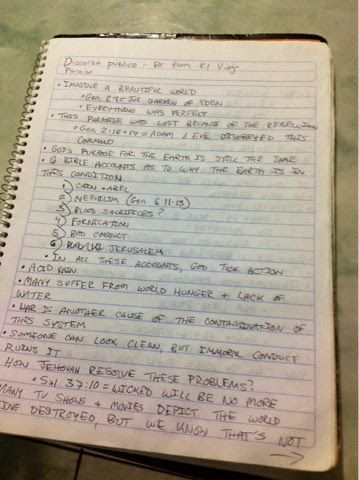 Discurso publico - Dr from El Viejo
Paraiso
• IMAGINE A BEAUTIFUL WORLD
• Gen. 2:8 = THE GARDEN OF EDEN
• EVREYTHING WAS PERFECT
• THIS PARADISE WAS LOST BECAUSE OF THE REBELLION
• Gen 2:16+17 = ADAM & EVE DISOBEYED THIS
COMMAND
• GOD'S PURPOSE FOR THE EARTH IS STILL THE SAME
• 6 BIBLE ACCOUNTS AS TO WHY THE EARTH IS IN
THIS CONDITION
1) CAIN + ABEL
2) NEPHILIM (Gen. 6:11-13)
3) BLOOD SACRIFICES?
4) FORNICATION
5) BAD CONDUCT
6) JERUSALEM
• IN ALL THESE ACCOUNTS, GOD TOOK ACTION
• ACID RAIN
• MANY SUFFER FROM WORLD HUNGER + LACK OF
WATER
• WAR IS ANOTHER CAUSE OF THE CONTAMINATION OF
THIS SYSTEM
• SOMEONE CAN LOOK CLEAN, BUT IMMORAL CONDUCT
RUINS IT
HOW JEHOVAH RESOLVE THESE PROBLEMS?
• Sal. 37:10 = WICKED WILL BE NO MORE
MANY TV SHOWS + MOVIES DEPICT THE WORLD
ING DESTROYED, BUT WE KNOW THAT'S NOT
→